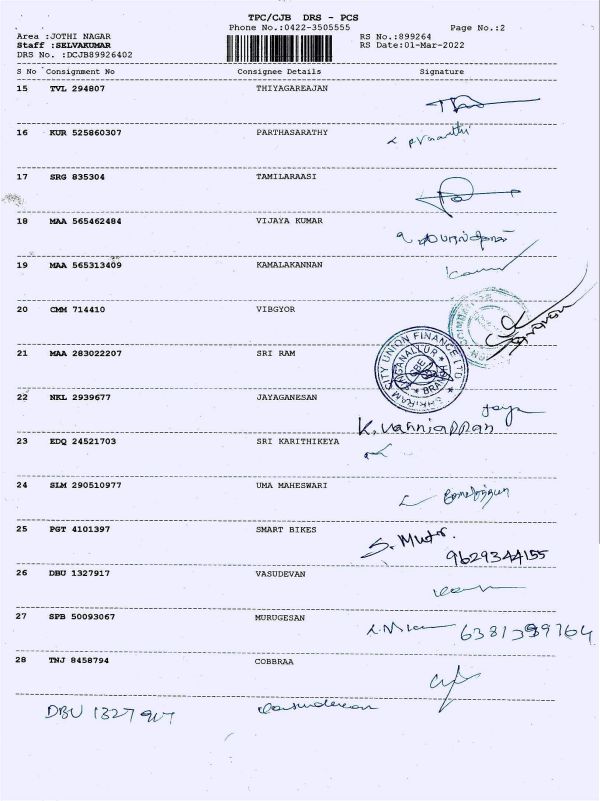 TPC/CJB DRS - PCS
Phone No.:0422-3505555 Page No.:2
Area :JOTHI NAGAR RS No.:899264
Staff :SELVAKUMAR RS Date:01-Mar-2022
DRS No. :DCJB89926402
S No Consignment No Consignee Details Signature
15 TVL 294807 THIYAGAREAJAN
16 KUR 525860307 PARTHASARATHY
17 SRG 835304 TAMILARAASI
18 MAA 565462484 VIJAYA KUMAR
19 MAA 565313409 KAMALAKANNAN
20 CMM 714410 VIBGYOR
21 MAA 283022207 SRI RAM
SHRIRAM CITY UNION FINANCE LTD
BRANCH
22 NKL 2939677 JAYAGANESAN
Jaya
K. Vanniappan
23 EDQ 24521703 SRI KARITHIKEYA
24 SLM 290510977 UMA MAHESWARI
25 PGT 4101397 SMART BIKES
9629344155
26 DBU 1327917 VASUDEVAN
27 SPB 50093067 MURUGESAN
28 TNJ 8458794 COBBRAA
DBU 1327917 Vasudevan